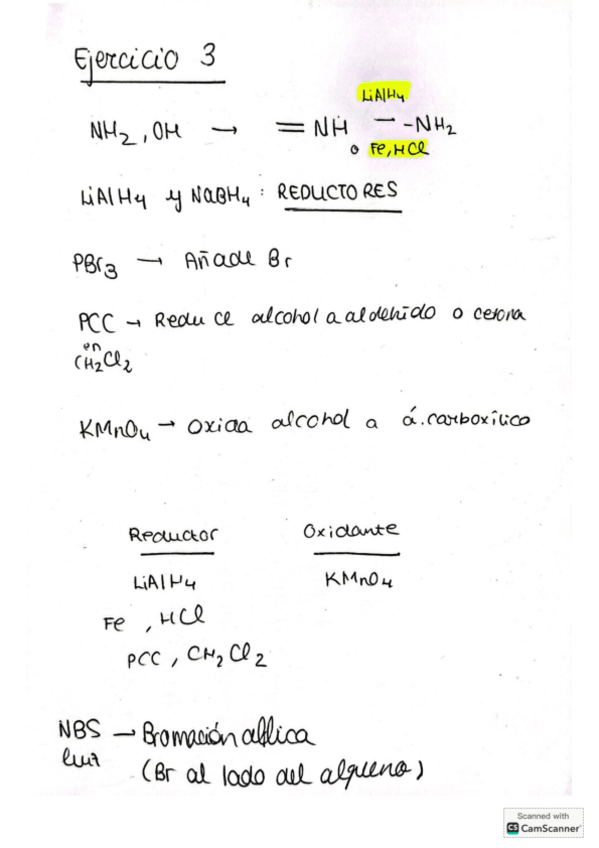 Ejercicio 3
LiAlH4
NH2, OH → = NH → -NH2
o Fe, HCl
LiAlH4 y NaBH4: REDUCTORES
PBr3 → Añade Br
PCC → Reduce alcohol a aldehido o cetona
en
CH2Cl2
KMnO4 → oxida alcohol a á. carboxílico
Reductor Oxidante
LiAlH4 KMnO4
Fe, HCl
PCC, CH2Cl2
NBS → Bromación alílica
luz
(Br al lado del alqueno)
Scanned with
CS CamScanner